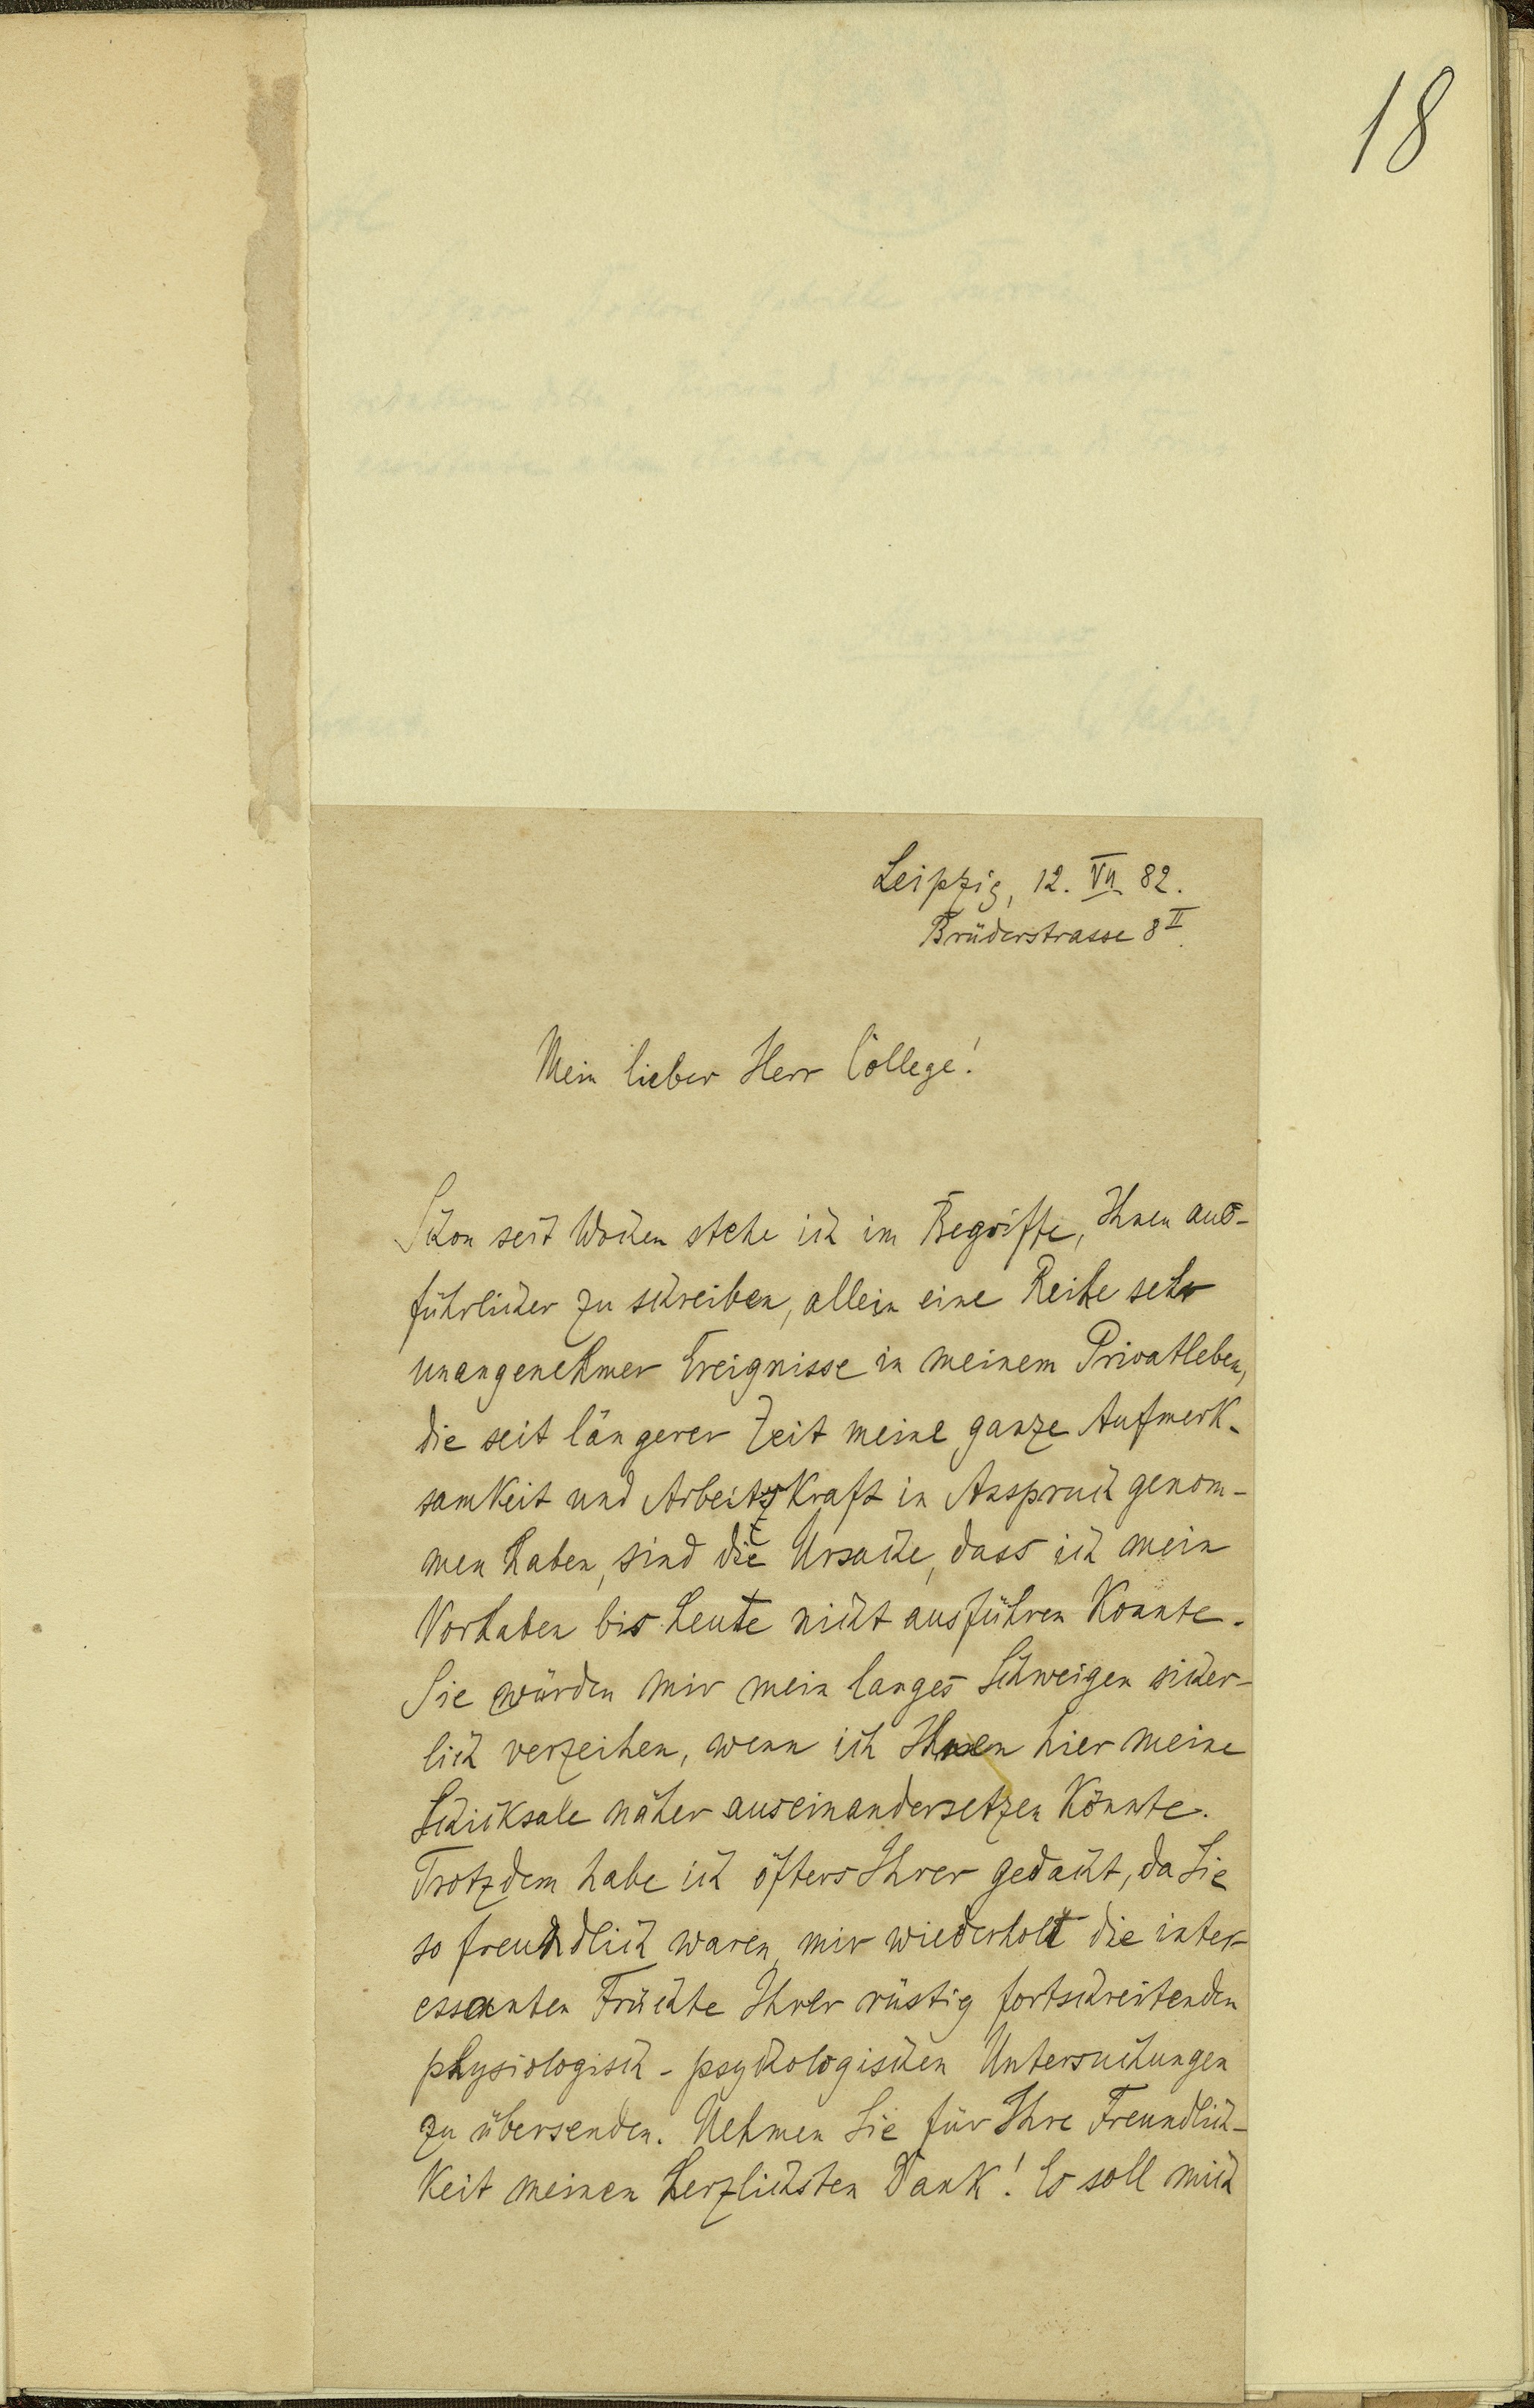 18
Leipzig, 12. VII. 82.
Brüderstrasse 8 II.
Mein lieber Herr College!
Schon seit Wochen stehe ich im Begriffe, Ihnen aus-
führlicher zu schreiben, allein eine Reihe sehr
unangenehmer Ereignisse in meinem Privatleben,
die seit längerer Zeit meine ganze Aufmerk-
samkeit und Arbeitskraft in Anspruch genom-
men haben, sind die Ursache, dass ich mein
Vorhaben bis heute nicht ausführen konnte.
Sie würden mir mein langes Schweigen sicher-
lich verzeihen, wenn ich Ihnen hier meine
Schicksale näher auseinandersetzen könnte.
Trotzdem habe ich öfters Ihrer gedacht, da Sie
so freundlich waren, mir wiederholt die inter-
essanten Früchte Ihrer rüstig fortschreitenden
physiologisch-psychologischen Untersuchungen
zu übersenden. Nehmen Sie für Ihre Freundlich-
keit meinen herzlichsten Dank! Es soll mich